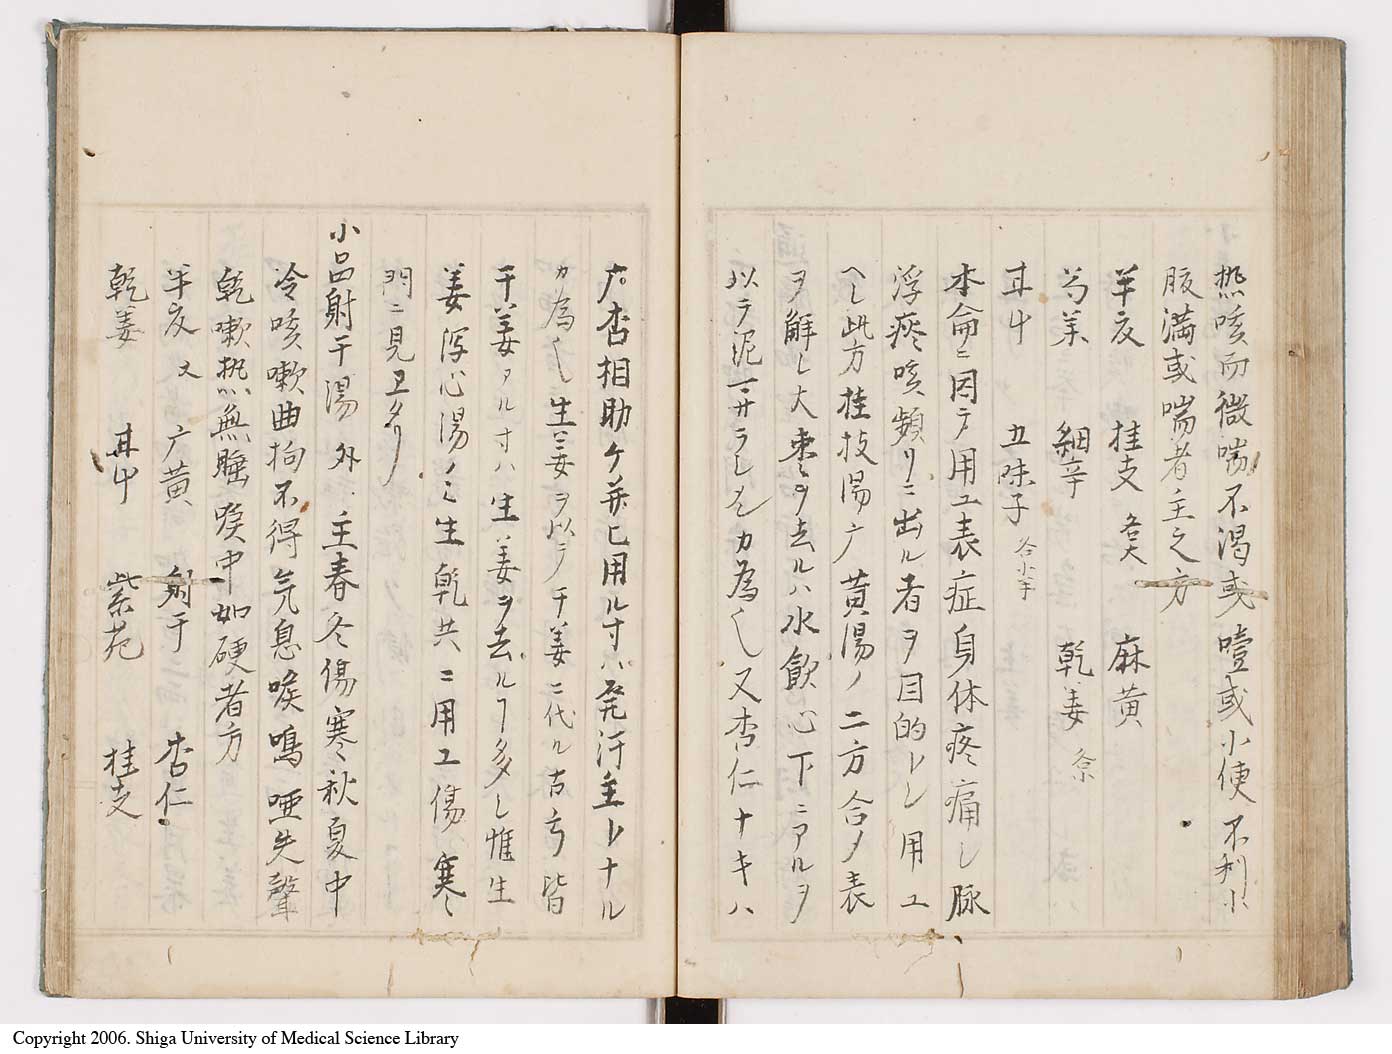 熱咳而微喘不渇或噎或小便不利小
腹満或喘者主之方
半夏 桂支 各大 麻黄
芍薬 細辛 乾姜 各
甘草 五味子 各小半
本侖ニ因テ用ユ表症身体疼痛し脈
浮痰咳頻リニ出ル者ヲ目的トレ用ユ
へし此方桂枝湯广黄湯ノ二方合ノ表
ヲ解し大棗ヲ去ルハ水飲心下ニアルヲ
以テ泥ラレヿカ為也又杏仁ナキハ
广杏相助ケ并ヒ用ル寸ハ発汗主トナル
カ為也生姜ヲ以テ干姜ニ代ル古方皆
干姜アル寸ハ生姜ヲ去ルヿ多し惟生
姜瀉心湯ノミ生乾共ニ用ユ傷寒
門ニ見ユタリ
小品射干湯 外 主春冬傷寒秋夏中
冷咳嗽曲拘不得気息喉鳴唖失聲
乾嗽熱無唾喉中如硬者方
半夏 又 广黄 射干 杏仁
乾姜 甘草 紫苑 桂支
Copyright 2006. Shiga University of Medical Science Library